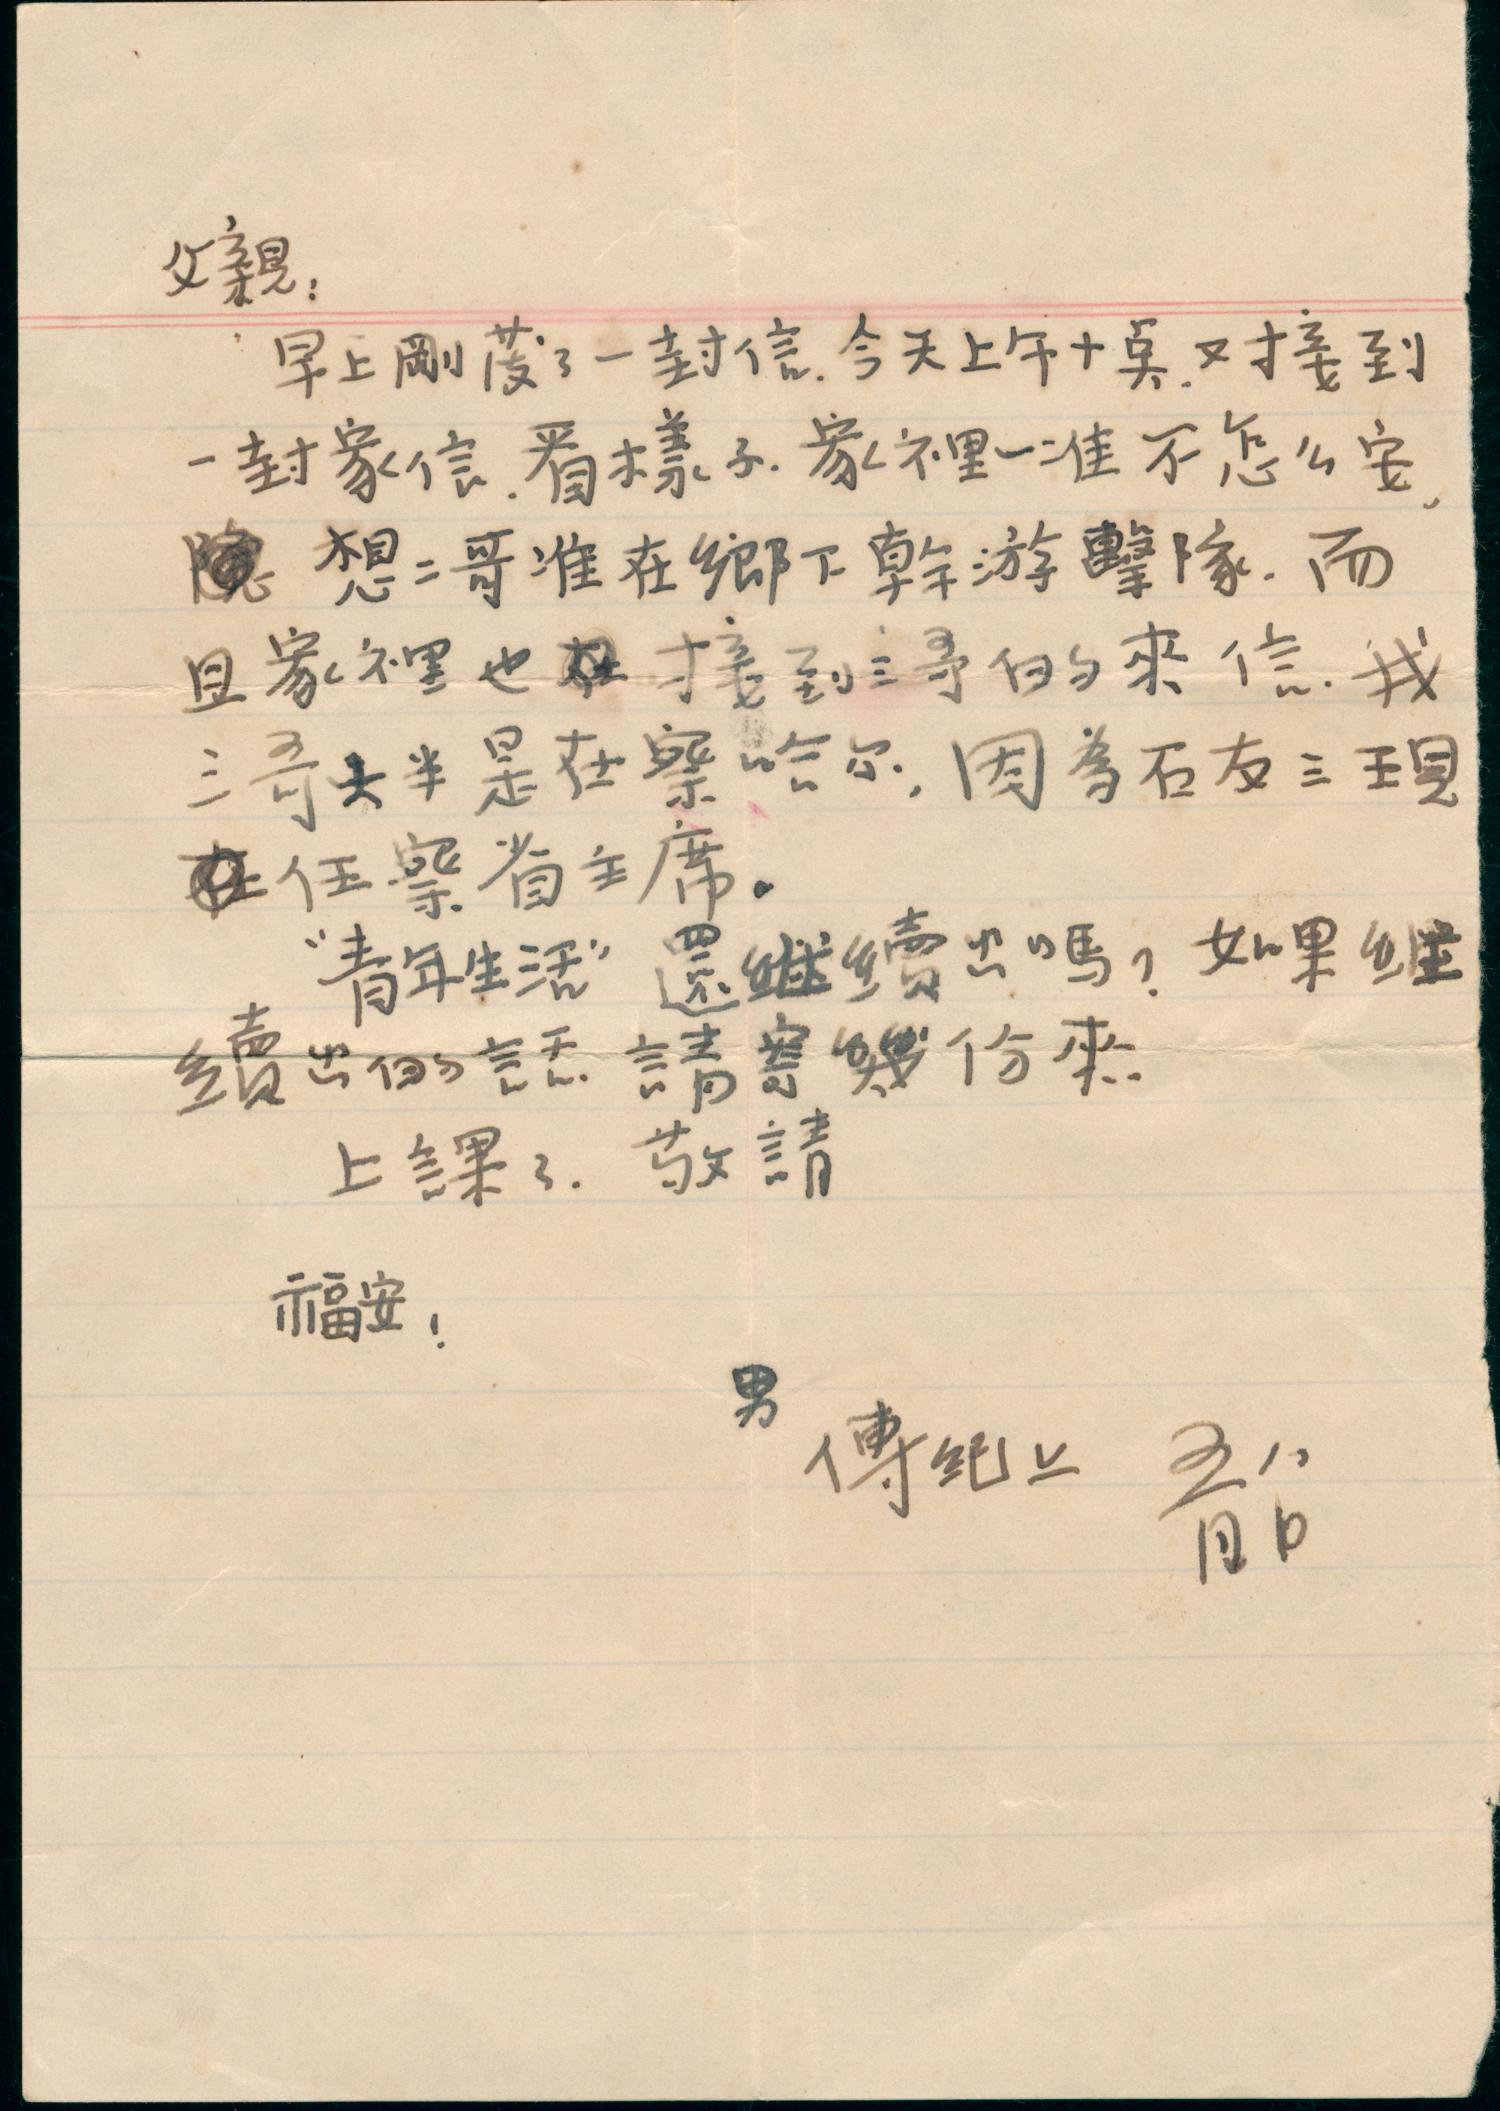 父親：
早上剛發了一封信.今天上午十點.又才接到
一封家信.看樣子.家裡一准不怎么安.
想二哥准在鄉下幹游擊隊.而
且家裡也才接到三哥的來信.我
三哥大半是在察哈尔.因為石友三現
任察省主席。
“青年生活”還继續出嗎？如果继
續出的話請寄幾份來.
上課了.敬請
福安！
男
傳紀上 五月八日